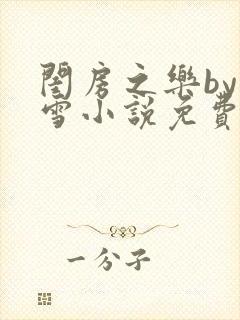 閨房之樂by
雪小說免費
一分子